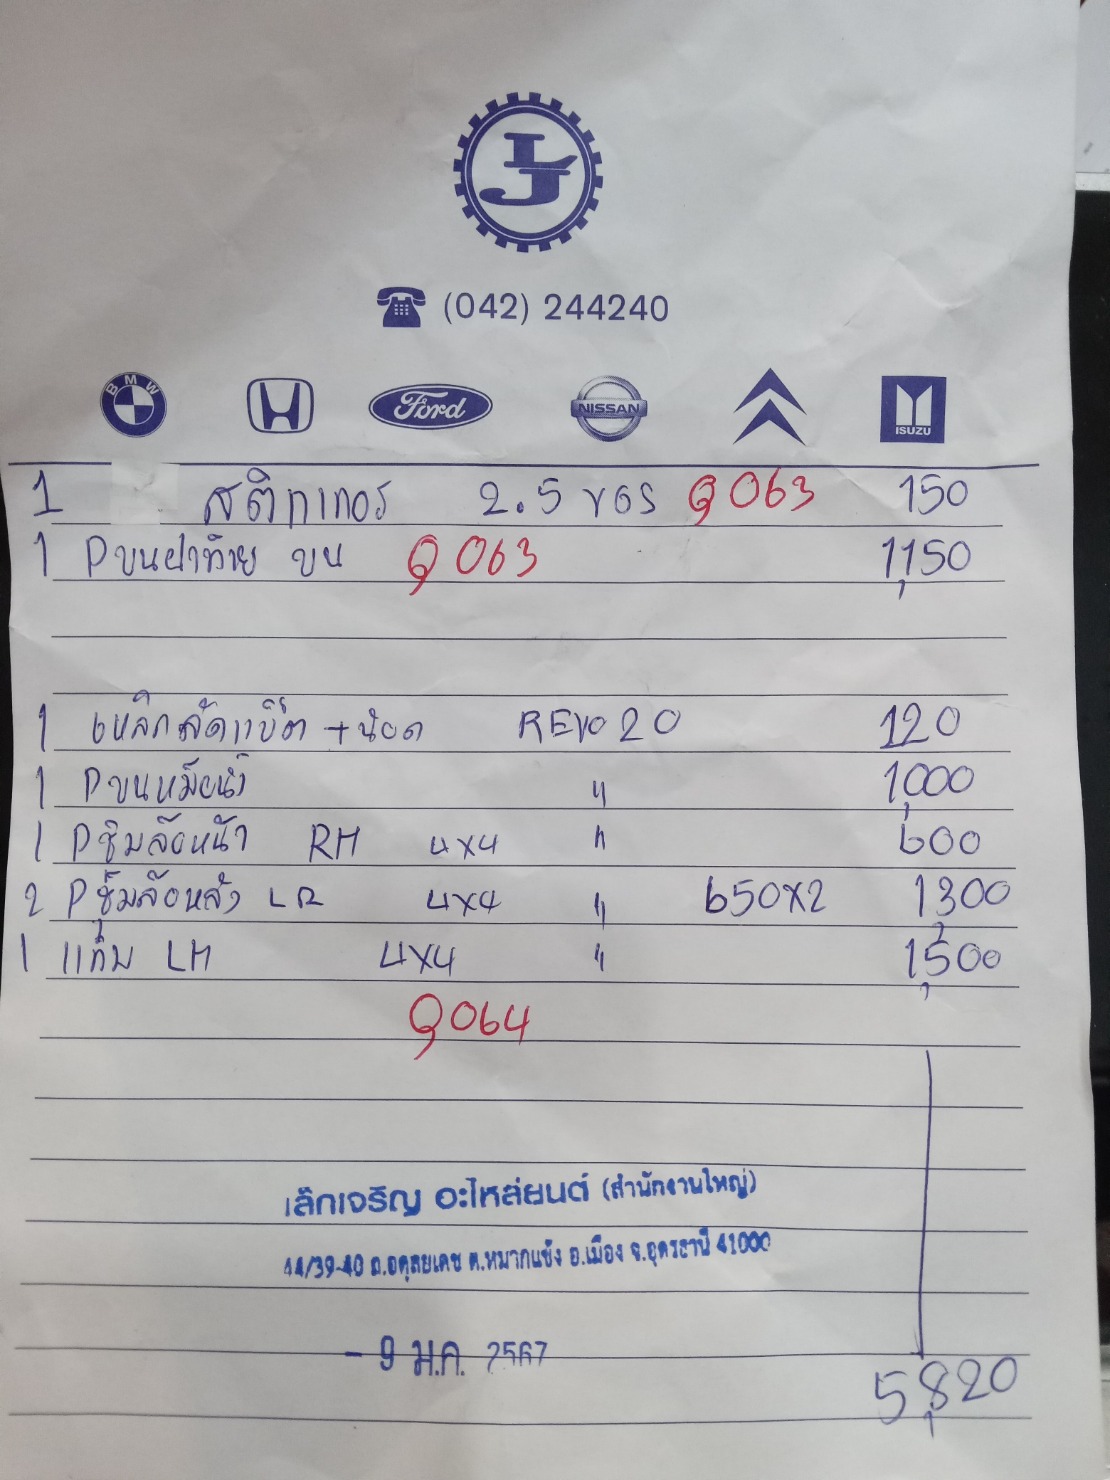 LJ
(042) 244240
BMW Ford NISSAN ISUZU
1 สติกเกอร์ 2.5 VGS Q063 150
1 Pขนฝาท้าย ขน Q063 1,150
1 เหล็กลัดแบ็ต + น๊อต REVO 20 120
1 Pขนหม้อน้ำ " 1,000
1 Pซุ้มล้อหน้า RH 4x4 " 600
2 Pซุ้มล้อหลัง LR 4x4 " 650x2 1,300
1 แก้ม LH 4x4 " 1,500
Q064
เล็กเจริญ อะไหล่ยนต์ (สำนักงานใหญ่)
44/39-40 ถ.อดุลยเดช ต.หมากแข้ง อ.เมือง จ.อุดรธานี 41000
- 9 ม.ค. 2567
5,820